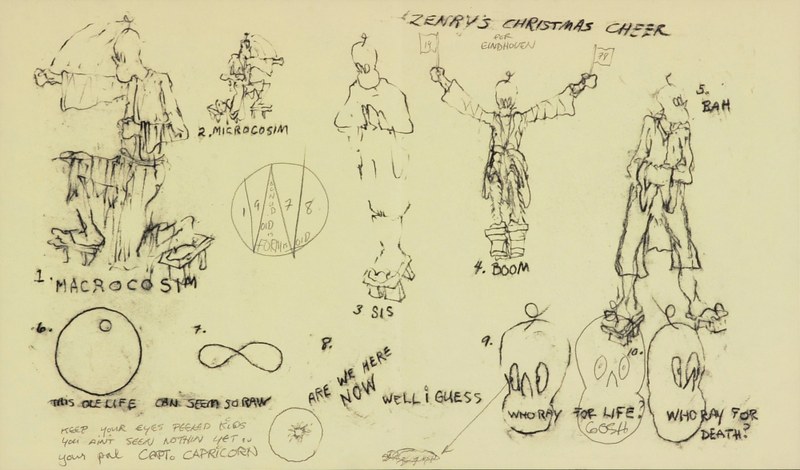 ZENRY'S CHRISTMAS CHEER
FOR
EINDHOVEN
2. MICROCOSIM
5.
BAH
1 9 7 8
VOID
FORM
VOID
1. MACROCOSIM
3 SIS
4. BOOM
6.
7.
8.
ARE WE HERE
NOW
WELL I GUESS
9.
10.
THIS OLE LIFE CAN SEEM SO RAW
WHORAY FOR LIFE?
GOSH
WHORAY FOR
DEATH?
KEEP YOUR EYES PEELED KIDS
YOU AIN'T SEEN NOTHIN YET
your pal CAPTo CAPRICORN